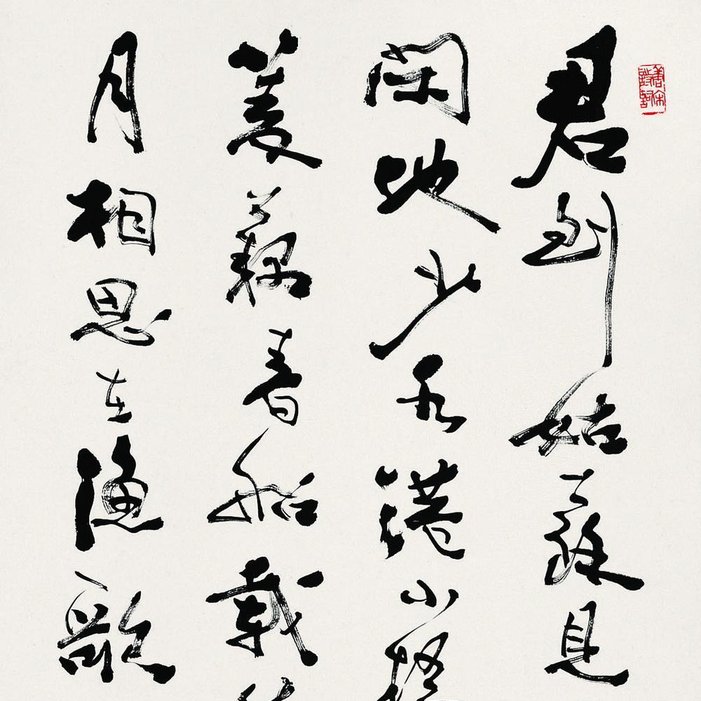 君到姑蘇見
閑地少水港小橋
菱藕春船載
月相思在漁歌